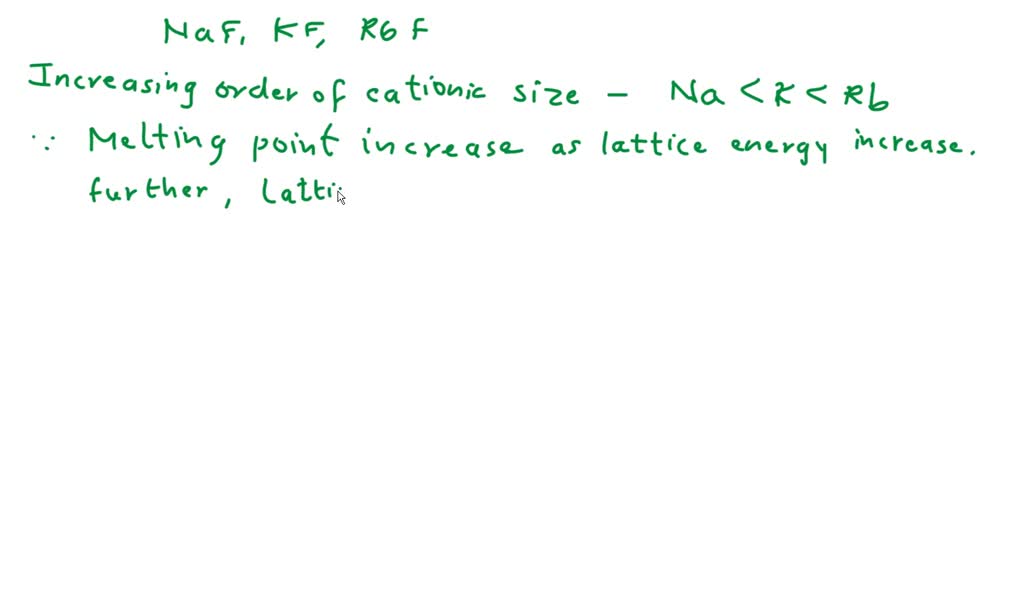 NaF, KF, RbF
Increasing order of cationic size - Na < K < Rb
∵ Melting point increase as lattice energy increase.
further, Latti